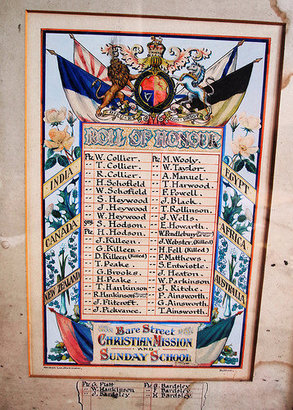 ROLL OF HONOUR
Pte W. Collier.
" T. Collier.
" R. Collier.
" H. Schofield
" W. Schofield
" S. Heywood
" J. Heywood
" W. Heywood
S. Hodson.
Pte H. Hodson.
" J. Killeen.
" G. Killeen.
" D. Killeen (Killed)
" T. Peake
" G. Brooks.
" H. Peake
" T. Hankinson
" R. Hankinson
" F. Pitcroft.
" J. Pickvance.
Pte M. Wooly.
" W. Taylor.
" A. Manuel.
" T. Harwood.
" F. Powell.
" J. Black.
" T. Rollinson.
" J. Wells.
" E. Howarth.
" W. Pendlebury
" J. Webster. (Killed)
" H. Fell (Killed)
" F. Matthews.
" S. Entwistle.
" J. Heaton.
" W. Parkinson
" J. Ritchie
" P. Ainsworth.
" G. Ainsworth.
" T. Ainsworth.
INDIA
CANADA
NEW ZEALAND
EGYPT
AFRICA
AUSTRALIA
Bare Street
CHRISTIAN MISSION
AND
SUNDAY SCHOOL
Pte G. Platt
" W. Hankinson
" J. Bardsley
Pte S. Bardsley
" F. Bardsley
" R. Bardsley